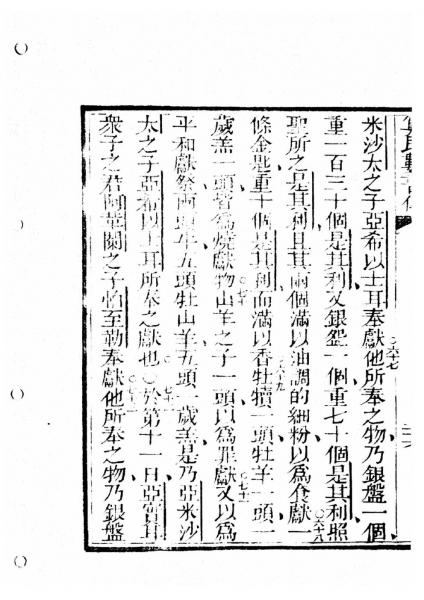 米沙太之子亞希以士耳奉獻他所奉之物乃銀盤一個
〇六十七
重一百三十個是其利又銀盌一個重七十個是其利照
〇六十八
聖所之是其利且其兩個滿以油調的細粉以為食獻一
〇六十九
條金匙重十個是其利而滿以香牡犢一頭牡羊一頭一
〇七十
歲羔一頭皆為燒獻物山羊之子一頭以為罪獻又以為
〇七十一
平和獻祭兩頭牛五頭牡山羊五頭一歲羔是乃亞米沙
太之子亞希以士耳所奉之獻也〇於第十一日亞實耳
衆子之君阿華闌之子怕至勒奉獻他所奉之物乃銀盤